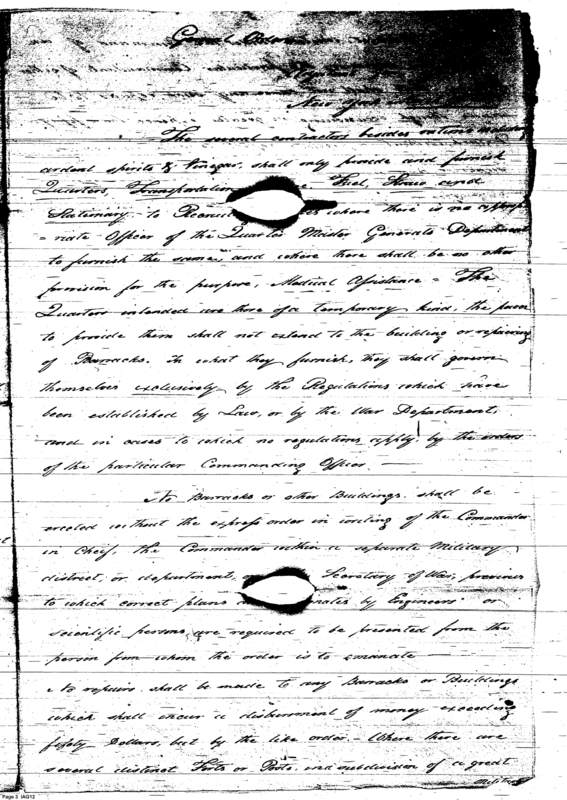 General Orders
New York
The several contractors besides rations including
ardent spirits & Vinegar, shall only provide and furnish
Quarters, Transportation Fuel, Straw and
Stationary to where there is no
Officer of the Quarter Master Generals Department
to furnish the same, and where there shall be no other
provision for the purpose, Medical Assistance = The
Quarters intended are those of a temporary kind, the power
to provide them shall not extend to the building or repairing
of Barracks. In what they furnish, they shall govern
themselves exclusively by the Regulations which have
been established by Law, or by the War Department,
and in cases to which no regulations apply by the orders
of the particular Commanding Officer. —
No Barracks or other Buildings shall be
erected without the express order in writing of the Commander
in Cheif, the Commander within a separate Military
district, or department, Secretary of War, previous
to which correct plans by Engineers or
scientific persons, are required to be presented from the
person from whom the order is to emanate —
No repairs shall be made to any Barracks or Buildings
which shall incur a disbursment of money exceeding
fifety Dollars, but by the like order. — Where there are
several distinct Forts or Posts, in a subdivision of a great
military
Page 3 IAG12